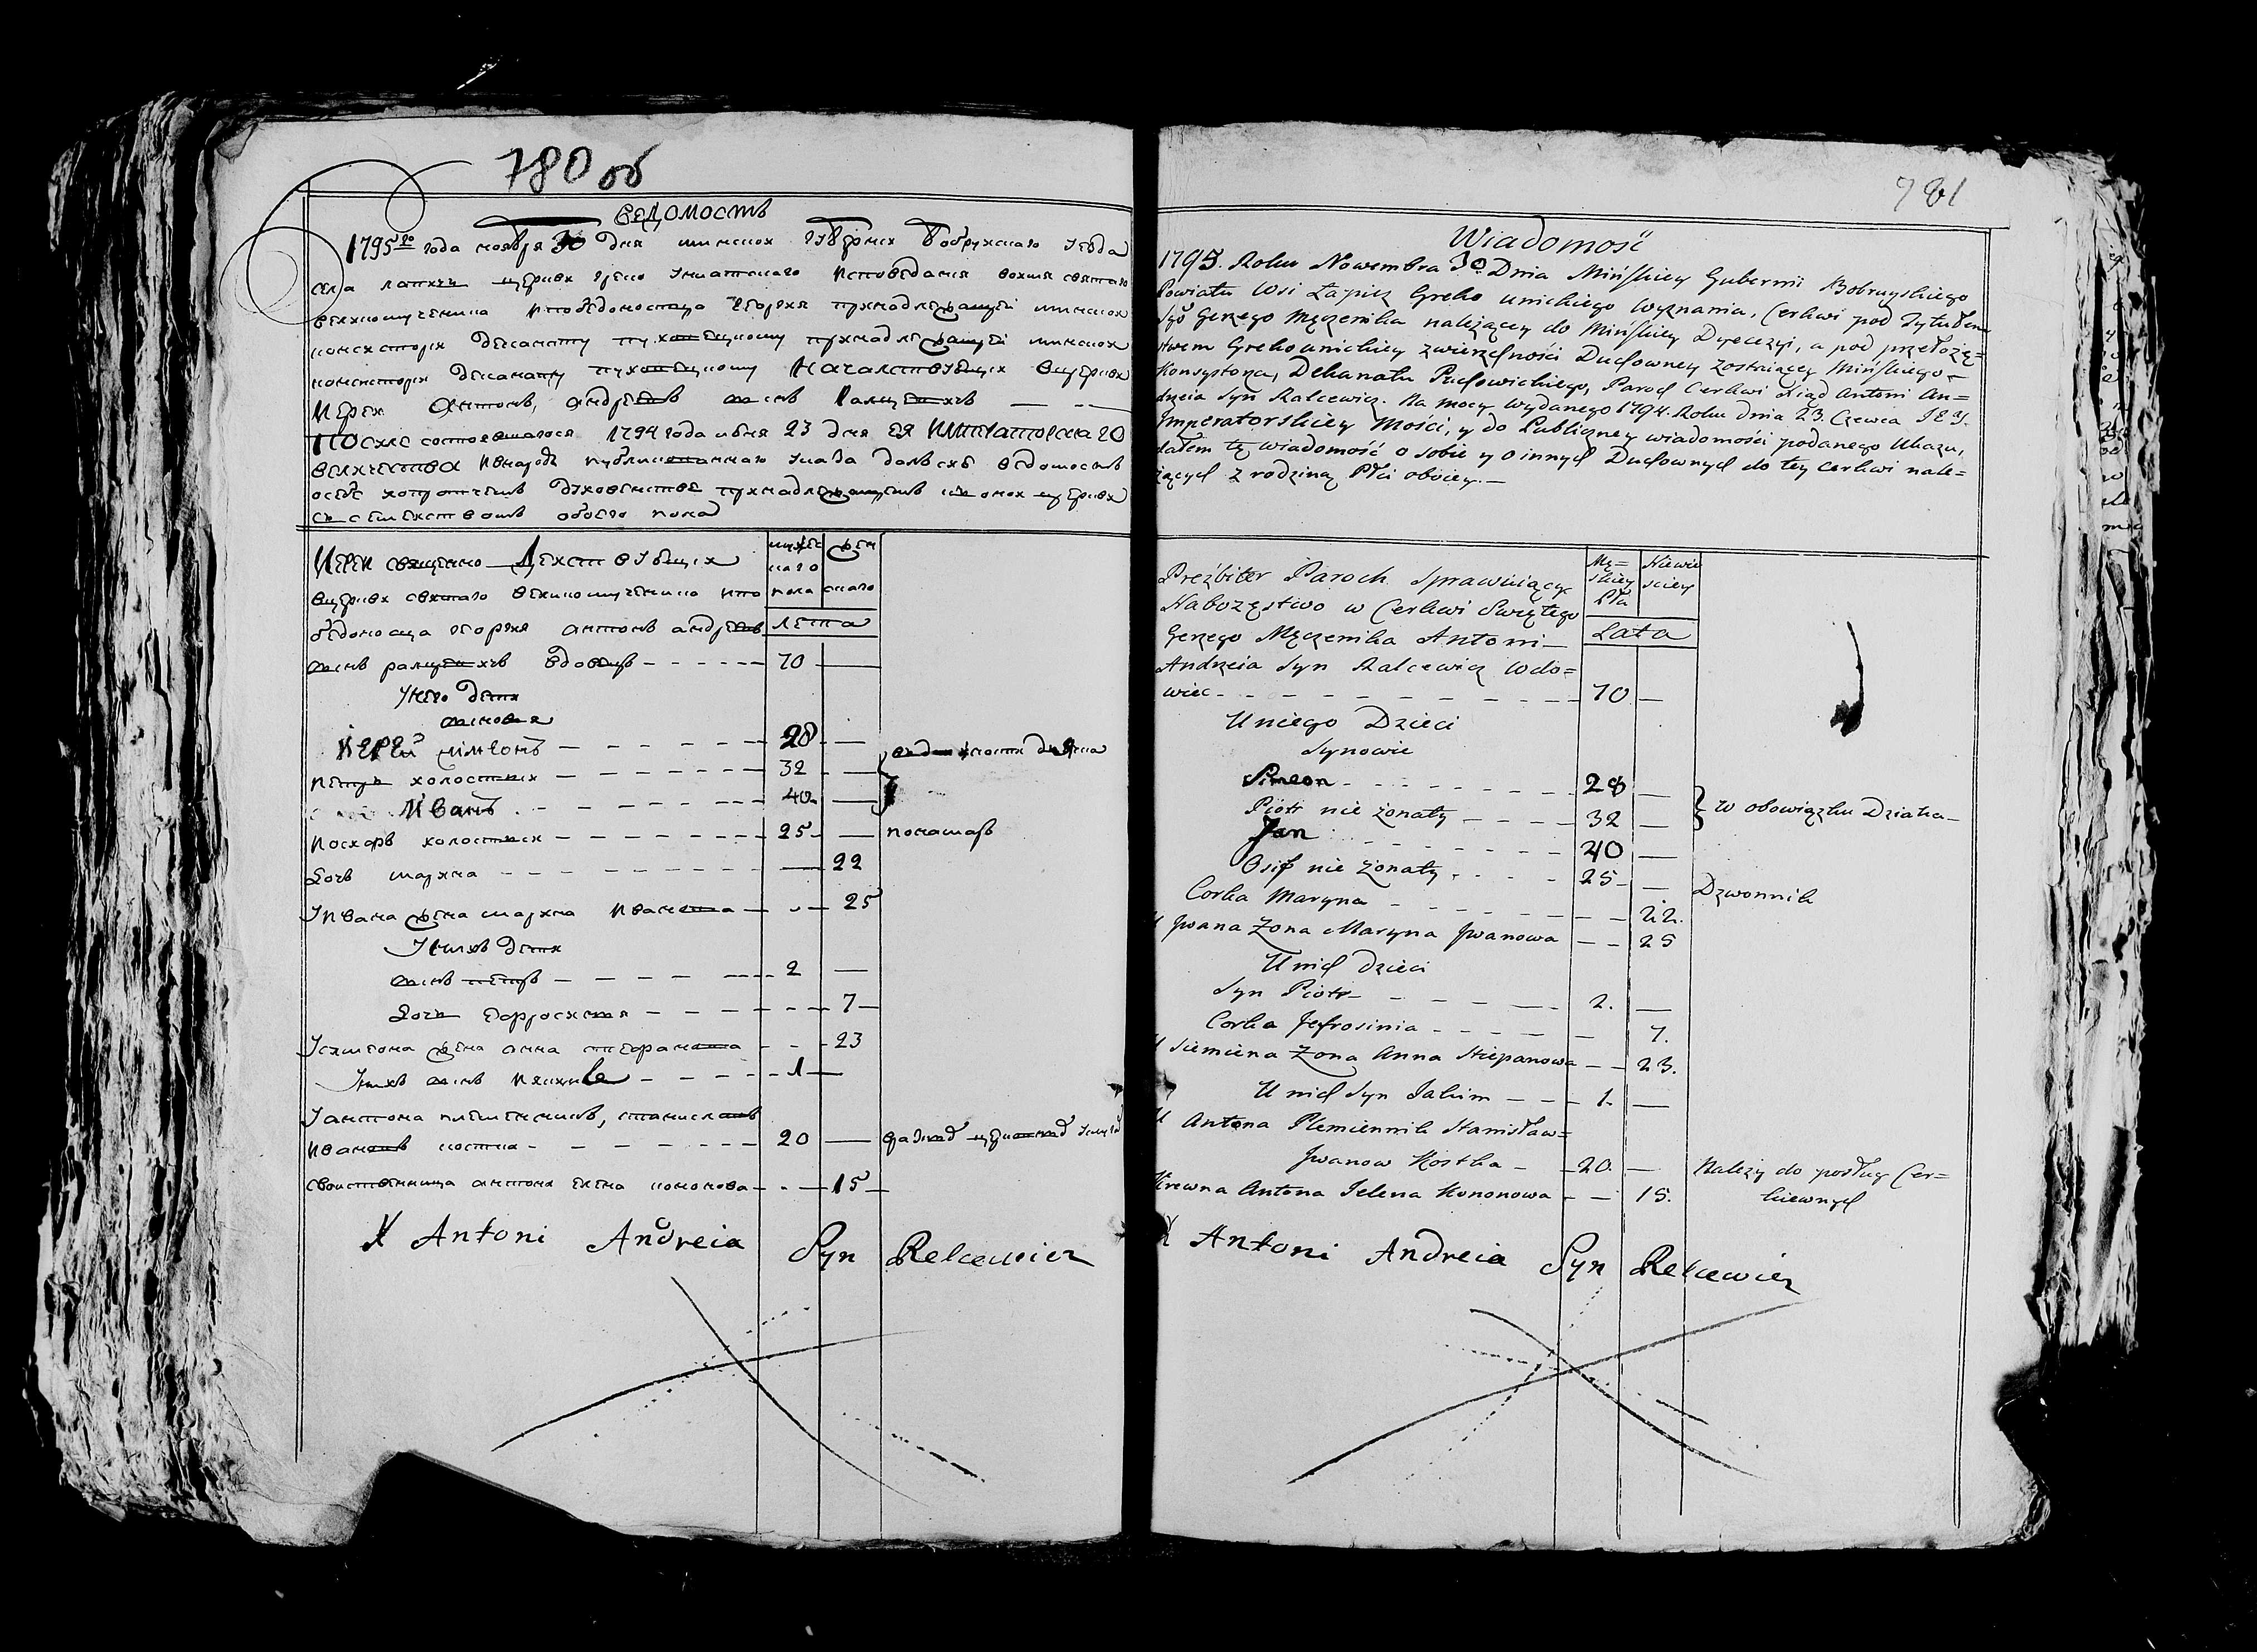 780 об
ведомость
1795го года ноября 30 дня минской губернии Бобруйского уезда
села лапичъ церкви греко униатского исповедания во имя святаго
великомученика и победоносца георгия принадлежащей минской
консистории деканату пуховецкому принадлежащей минской
консистории деканату пуховецкому Началствующи в церкви
Иерей Антонъ, андреевъ сынъ Ралцевичъ
После состоявшагося 1794 года июня 23 дня ея Императорскаго
величества и в народъ публикованнаго указа далъ сию ведомость
о себе и о протчемъ духовенстве принадлежащемъ к оной церкви
съ семействомъ обоего пола
Иерей священно Действующи
в церкви святаго великомученика и по
бедоносца георгия антонъ андреевъ
сынъ ралцевичъ вдовецъ 70
мужеска го пола
жен скаго
лета
У него дети
сыновья
Иерей симеонъ 28
петръ холостыи 32
Иванъ 40
в должности дьячка
иосифъ холостыи 25 понамарь
дочь марина 22
У ивана жена марина иванова 25
У нихъ дети
сынъ петръ 2
дочь ефросиния 7
У симеона жена анна стефанова 23
У нихъ сынъ иякимъ 1
У антона племенникъ, станиславъ
ивановъ костка 20
свойственница антона елена кононова 15
X Antoni Andreia Syn Relcewicz
781
Wiadomość
1795. Roku Nowembra 30 Dnia Mińskiey Gubernii Bobruyskiego
Powiatu Wsi Łapicz Greko unickiego Wyznania, Cerkwi pod Tytułem
Sgo Gerzego Męczenika należącey do Mińskiey Dyecezyi, a pod przełożę=
stwem Grekounickiey zwierzchności Duchowney zostaiącey Mińskiego
Konsystorza, Dekanatu Puchowickiego, Paroch Cerkwi Xiądz Antoni An=
drzeia Syn Ralcewicz. Na mocy wydanego 1794. Roku dnia 23. Czewca JEJ.
Imperatorskiey Mości, y do Publiczney wiadomości podanego Ukazu,
dałem tę wiadomość o sobie y o innych Duchownych do tey cerkwi nale=
żących z rodziną Płci oboiey.
Prezbiter Paroch Sprawuiący
Nabozęstwo w Cerkwi Swiętego
Gerzego Męczenika Antoni
Andrzeia Syn Ralcewicz Wdo=
wiec 70
Mę= skiey Płci
Niewie sciey
Lata
U niego Dzieci
Synowie
Simeon 28
Piotr nie żonaty 32
w obowiązku Dziaka
Jan 40
Osif nie żonaty 25 Dzwonnik
Corka Maryna 22.
U Jwana Zona Maryna Jwanowa 25
U nich Dzieci
Syn Piotr 2.
Corka Jefrosinia 7.
U Siemiena Zona Anna Stiepanowa 23.
U nich Syn Jakim 1.
U Antona Plemiennik Stanisław=
Jwanow Kostka 20. Należy do posług Cer=
kiewnych
Krewna Antona Jelena Kononowa 15.
X Antoni Andreia Syn Relcewicz